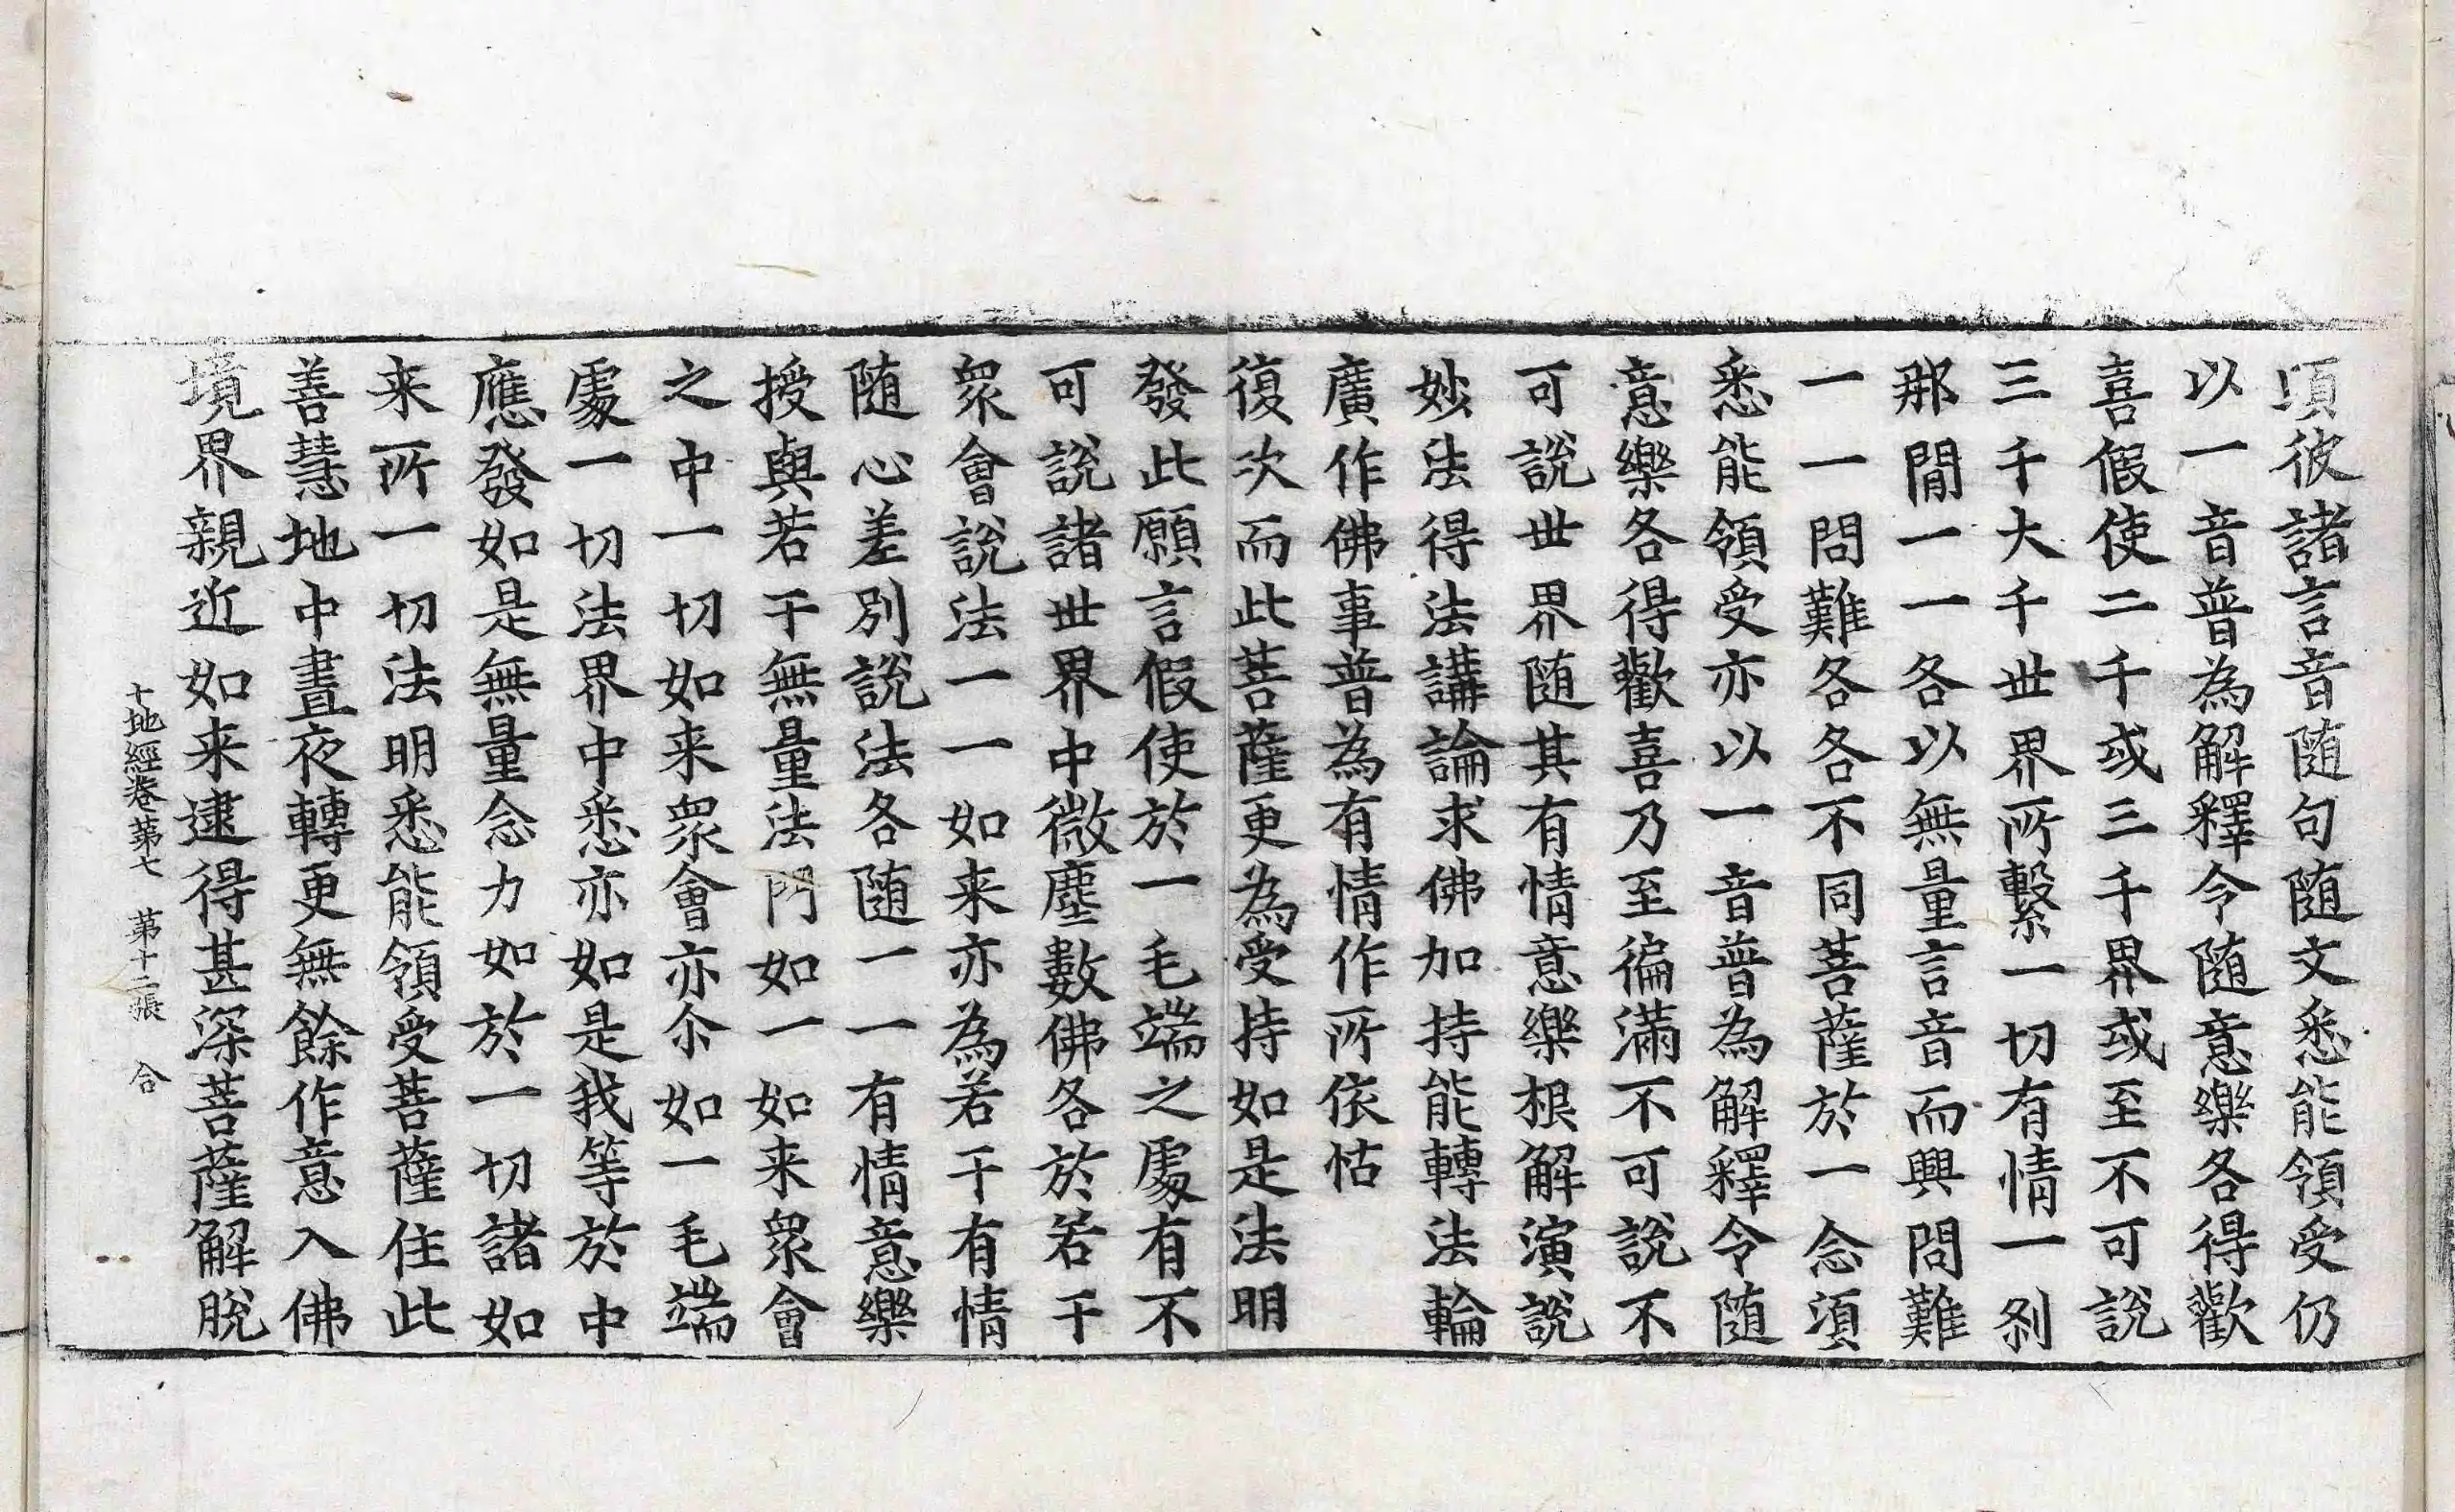 頃彼諸言音随句随文悉能領受仍
以一音普為解釋令随意樂各得歡
喜假使二千或三千界或至不可說
三千大千世界所繫一切有情一剎
那閒一一各以無量言音而興問難
一一問難各各不同菩薩於一念湏
悉能領受亦以一音普為解釋令随
意樂各得歡喜乃至徧滿不可說不
可說世界随其有情意樂根解演說
妙法得法講論求佛加持能轉法輪
廣作佛事普為有情作所依怙
復次而此菩薩更為受持如是法明
發此願言假使於一毛端之處有不
可說諸世界中微塵數佛各於若干
衆會說法一一如来亦為若干有情
随心差別說法各随一一有情意樂
授與若干無量法門如一如来衆會
之中一切如来衆會亦尒如一毛端
處一切法界中悉亦如是我等於中
應發如是無量念力如於一切諸如
来所一切法明悉能領受菩薩住此
善慧地中晝夜轉更無餘作意入佛
境界親近如来逮得甚深菩薩解脫
十地經卷苐七 苐十二張 合